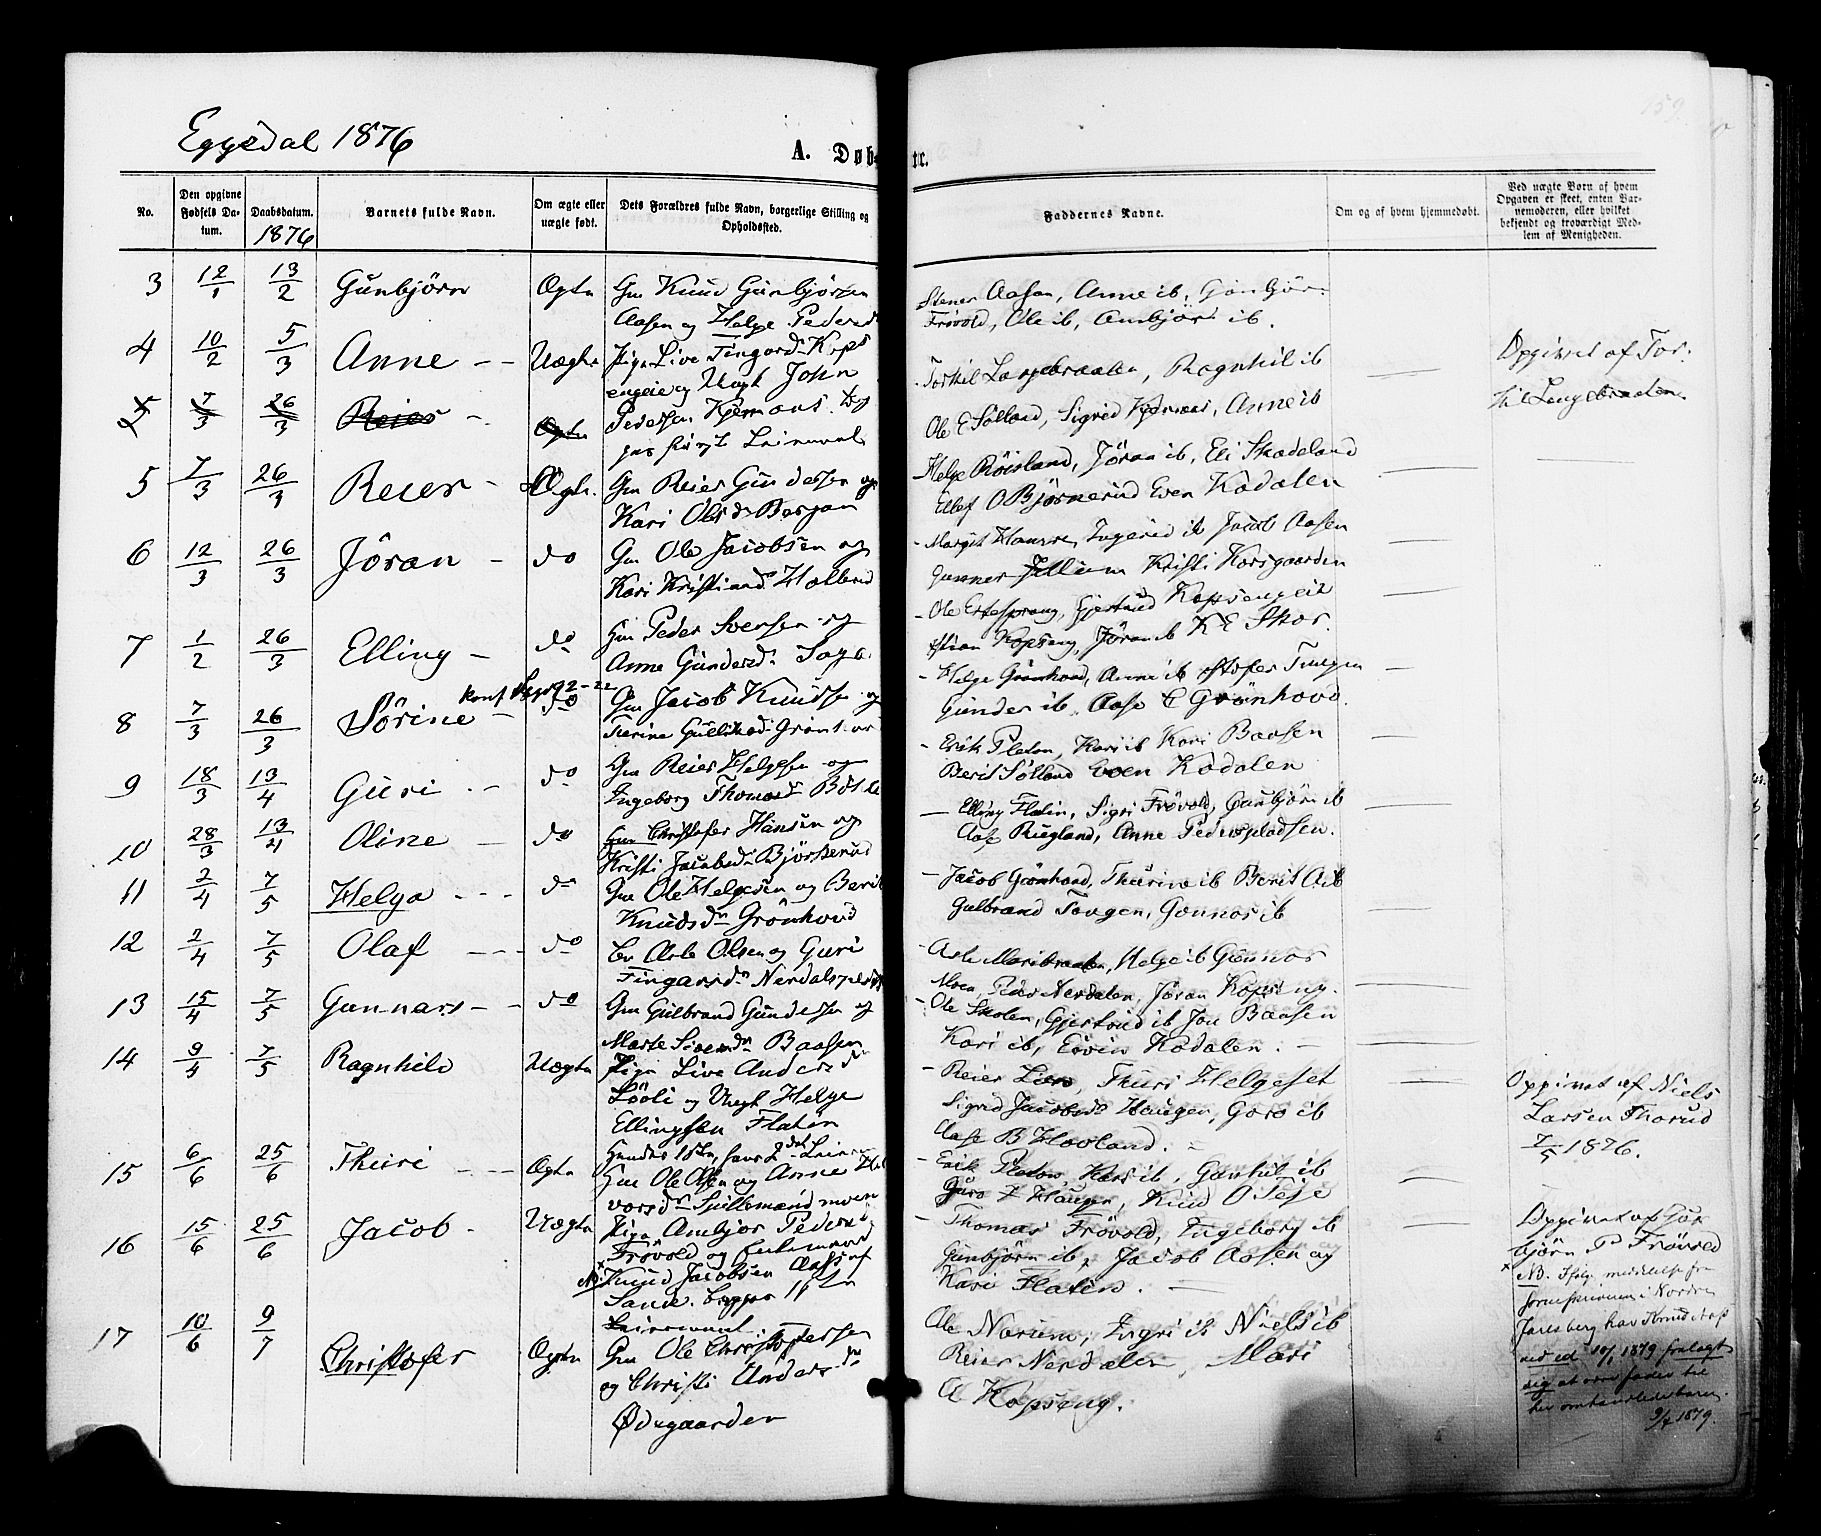 Eggedal 1876
A. Døbte.
159
No.
Den opgivne Fødsels Datum.
Daabsdatum. 1876
Barnets fulde Navn.
Om ægte eller uægte født.
Dets Forældres fulde Navn, borgerlige Stilling og Opholdssted.
Faddernes Navne.
Om og af hvem hjemmedøbt.
Ved uægte Børn af hvem Opgaven er skeet, enten Barnemoderen, eller hvilket bekjendt og troværdigt Medlem af Menigheden.
3 12/1 13/2 Gunbjörn Ægte Gm Knud Gunbjörsen
Aasen og Helge Pedersd
Stener Aasen, Anne ib, Gunbjör
Frövold, Ole ib, Ambjör ib.
4 10/2 5/3 Anne Uægte Pige Live Fingarsd Kops
engeie og Ungk John
Pedersen Kjemaas. Beg
ges förste Leiermaal
Torkil Langebraaten, Ragnhil ib
Ole E Sölland, Sigrid Kjemaas, Anne ib
Opgivet af Tor
kil Langebraaten
5 7/3 26/3 Reier Ægte
5 7/3 26/3 Reier Ægte. Gm Reier Gundersen og
Kari Olsd Bergan
Helge Röisland, Jöran ib, Eli Skadeland
Ellef O Björnerud Even Kodalen
6 12/3 26/3 Jöran do Gm Ole Jacobsen og
Kari Kristiansd Holberd
Margit Haugen, Ingerid ib Jacob Aasen
Gunner Kristi Korsgaarden
7 1/2 26/3 Elling do Gm Peder Svensen og
Anne Gundersd Saga
Ole Ertesprang, Gjertrud Kopsengeie
Kopseng, Jöran ib K E Skor
8 7/3 26/3 Sörine do Gm Jacob Knudsen og
Turine Gulliksd Grønhov
Helge Grönhovd, Anne ib Stofer Tveegen
Gunder ib, Aase E Grönhovd.
9 18/3 13/4 Guri do Gm Reier Helgesen og
Ingeborg Thomasd
Erik Flaten, Kari ib Kari Baasen
Berit Sölland Even Kodalen
10 28/3 13/4 Oline do Gm Christofer Hansen og
Kristi Jacobsd Björkerud
Elling Flatin, Sigri Frövold, Gunbjör ib
Aase Rugland, Anne Pederspladsen.
11 2/4 7/5 Helga do Gm Ole Helgesen og Berit
Knudsdn Grönhovd
Jacob Grönhovd, Thurine ib Berit A ib
Gulbrand Tovgen, Gonnor ib
12 2/4 7/5 Olaf do Asle Olsen og Guri
Fingarsdn Nerdalspladsen
Asle Moribraaten, Helge ib Gunnor
Moen, Peder Nerdalen, Jöran Kopseng.
13 15/4 7/5 Gunnars do Gm Gulbrand Gundersen og
Marte Sivertsdn Baasen
Ole Skolen, Gjertrud ib Jon Baasen
Kari ib, Even Kodalen.
14 9/4 7/5 Ragnhild Uægte Pige Live Andersd
Lööli og Ungk Helge
Ellingsen Flatin
Hendes 1ste, hans 2det Leierm
Reier Lien, Thuri Helgeset
Sigrid Jacobsd Haugen, Goro ib
Aase B Hovland.
Opgivet af Niels
Larsen Thorud
7/5 1876.
15 6/6 25/6 Thuri Ægte Gm Ole Olsen og Anne Hal
vorsdn Spillemandsmoen
Erik Flaten, Kari ib, Gunhil ib
Guro T Haugen, Knud O Teje
16 15/6 25/6 Jacob Uægte Pige Ambjor Pedersd
Frövold og Enkemand
NB Knud Jacobsen Aass af
Sande. Begges 1ste
Leiermaal.
Thomas Frövold, Ingeborg ib
Gunbjörn ib, Jacob Aasen og
Kari Flaten.
Opgivet af Gun
björn P Frövold
NB. Ifölge meddelelse fra
Sorenskriveren i Nordre
Jarlsberg har Knud Aas
ved ed 10/1 1879 fralagt
sig at være fader til
her omhandlede barn.
9/4 1879.
17 10/6 9/7 Christofer Ægte Gm Ole Christofersen
og Christi Andersdn
Ødegaarden
Ole Narum, Ingri ib Niels ib
Reier Nerdalen, Mari
A Kopseng.